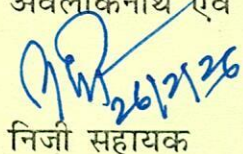 अवलोकनार्थ एवं
26/2/26
निजी सहायक